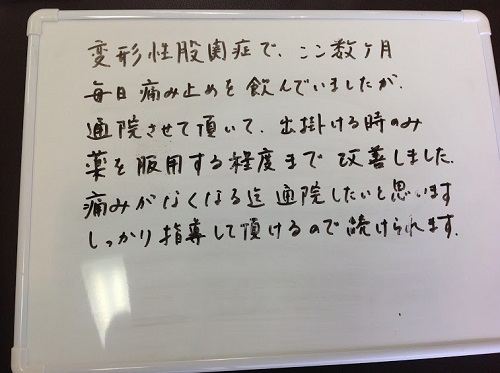 変形性股関症で、ここ数ヶ月
毎日痛み止めを飲んでいましたが、
通院させて頂いて、出掛ける時のみ
薬を服用する程度まで改善しました。
痛みがなくなる迄通院したいと思います
しっかり指導して頂けるので続けられます。